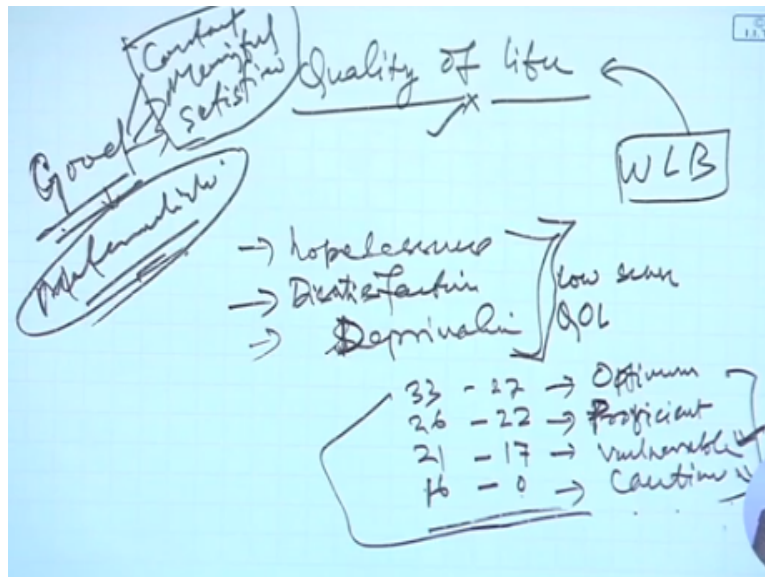 Constant
Meaningful
Quality of life
Good
WLB
→ hopelessness
→ Dissatisfaction
→ Deprivation
low scorer
QOL
33 - 27 → Optimum
26 - 22 → Proficient
21 - 17 → Vulnerable
16 - 0 → Caution